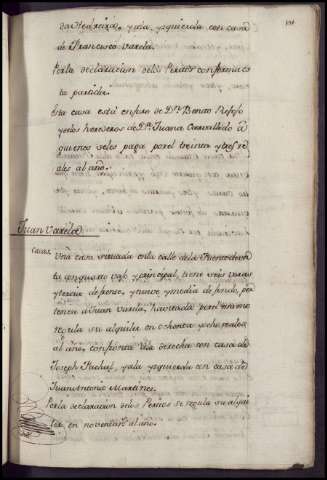 da Texeira, y ala yzquierda con casa
de Francisco Varela.
Por la declaracion de los Peritos conforma es
ta partida.
Esta casa està en foro de Dn. Benito
y de los herederos de Dn. Juana a
quienes se les paga por el treinta y tres re
ales al año.
Juan Varela
Casas. Una casa situada en la calle de la
ta con quarto vajo, y principal, tiene seis varas
y tercia de frente, y nueve y media de fondo, per
tenece a Juan Varela, havitada por
regula su alquiler en ochenta y ocho reales
al año, confronta ala derecha con casa de
Joseph y ala yzquierda con casa de
Juan Antonio Martinez.
Por la declaracion de los Peritos se regula su alqui
ler en noventa rs. al año.